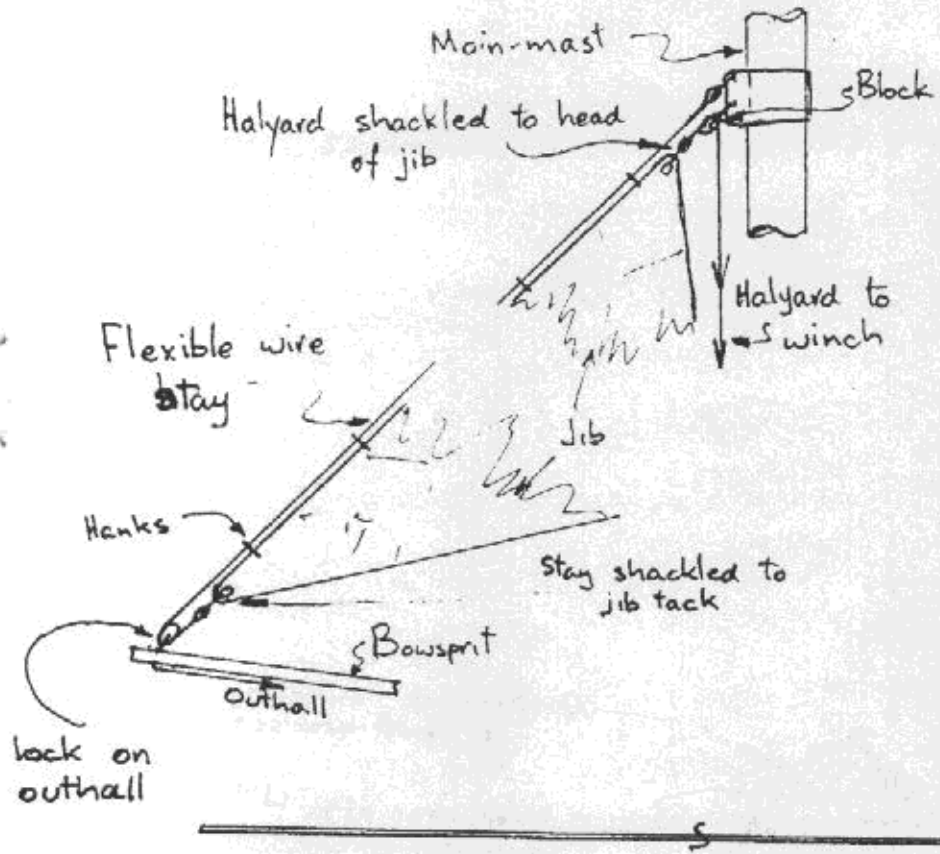 Main-mast
Block
Halyard shackled to head
of jib
Halyard to
winch
Flexible wire
stay
Jib
Hanks
Stay shackled to
jib tack
Bowsprit
Outhall
lock on
outhall